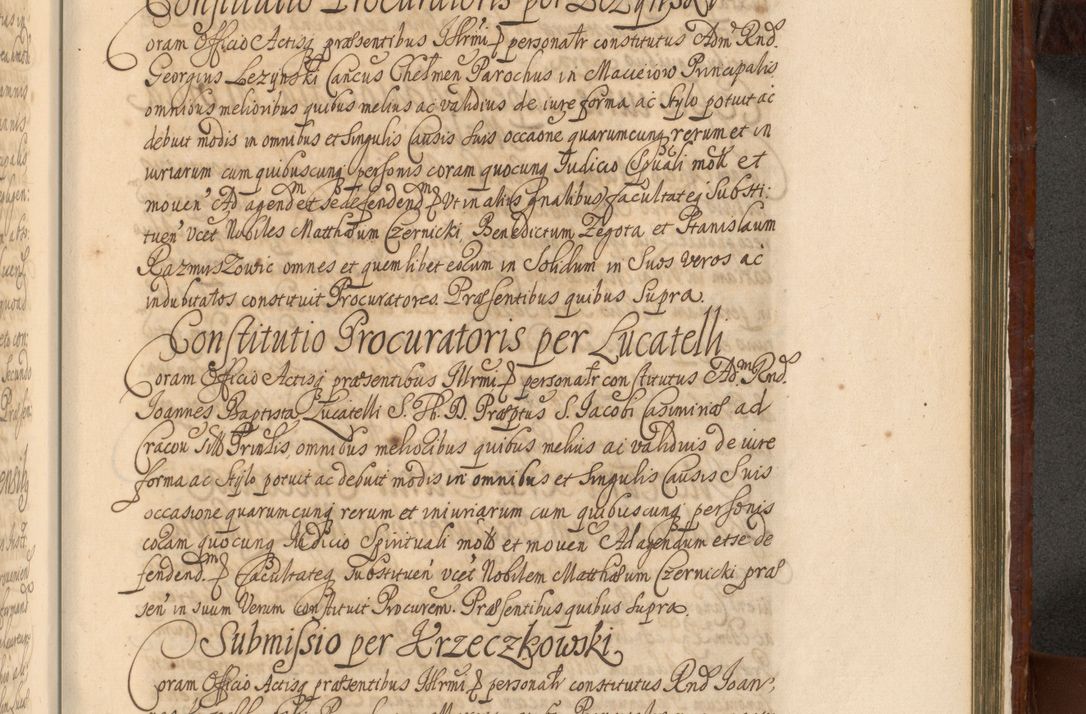 Constitutio Procuratoris per Lezynski
Coram Officio Actisq præsentibus Illrmi personalr constitutus Adm Rnd.
Georgius Lezynski Cancus Chelmen Parochus in Macieiow Principalis
omnibus melioribus quibus melius ac validius de iure forma ac Stylo potuit ac
debuit modis in omnibus et Singulis Causis Suis occaone quarumcunq rerum et in
iuriarum cum quibuscunq personis coram quocunq Iudicio Spuali motis et
moven' Ad agend et Se defendend Ut in aliis gnalibus facultateq Substi:
tuen' vcet Nobiles Matthæum Czernicki, Benedictum Zegota et Stanislaum
Razmuszowic omnes et quemlibet eorum in Solidum in Suos veros ac
indubitatos constituit Procuratores Præsentibus quibus Supra.
Constitutio Procuratoris per Lucatelli
Coram Officio Actisq præsentibus Illrmi personalr constitutus Adm Rnd.
Ioannes Baptista Lucatelli S. Th. D. Præptus S. Iacobi Casimiriæ ad
Cracov Sitt Prinlis, omnibus melioribus quibus melius ac validius de iure
forma ac Stylo potuit ac debuit modis in omnibus et Singulis Causis Suis
occasione quarumcunq rerum et iniuriarum cum quibuscunq personis
coram quocunq Iudicio Spirituali motis et moven' Ad agendum et se de
fendend. facultateq Substituen' vcet Nobilem Matthæum Czernicki præ
sen' in suum Verum constituit Procurem. Præsentibus quibus Supra
Submissio per Krzeczkowski
Coram Officio Actisq præsentibus Illrmi personalr constitutus Rnd Ioan',